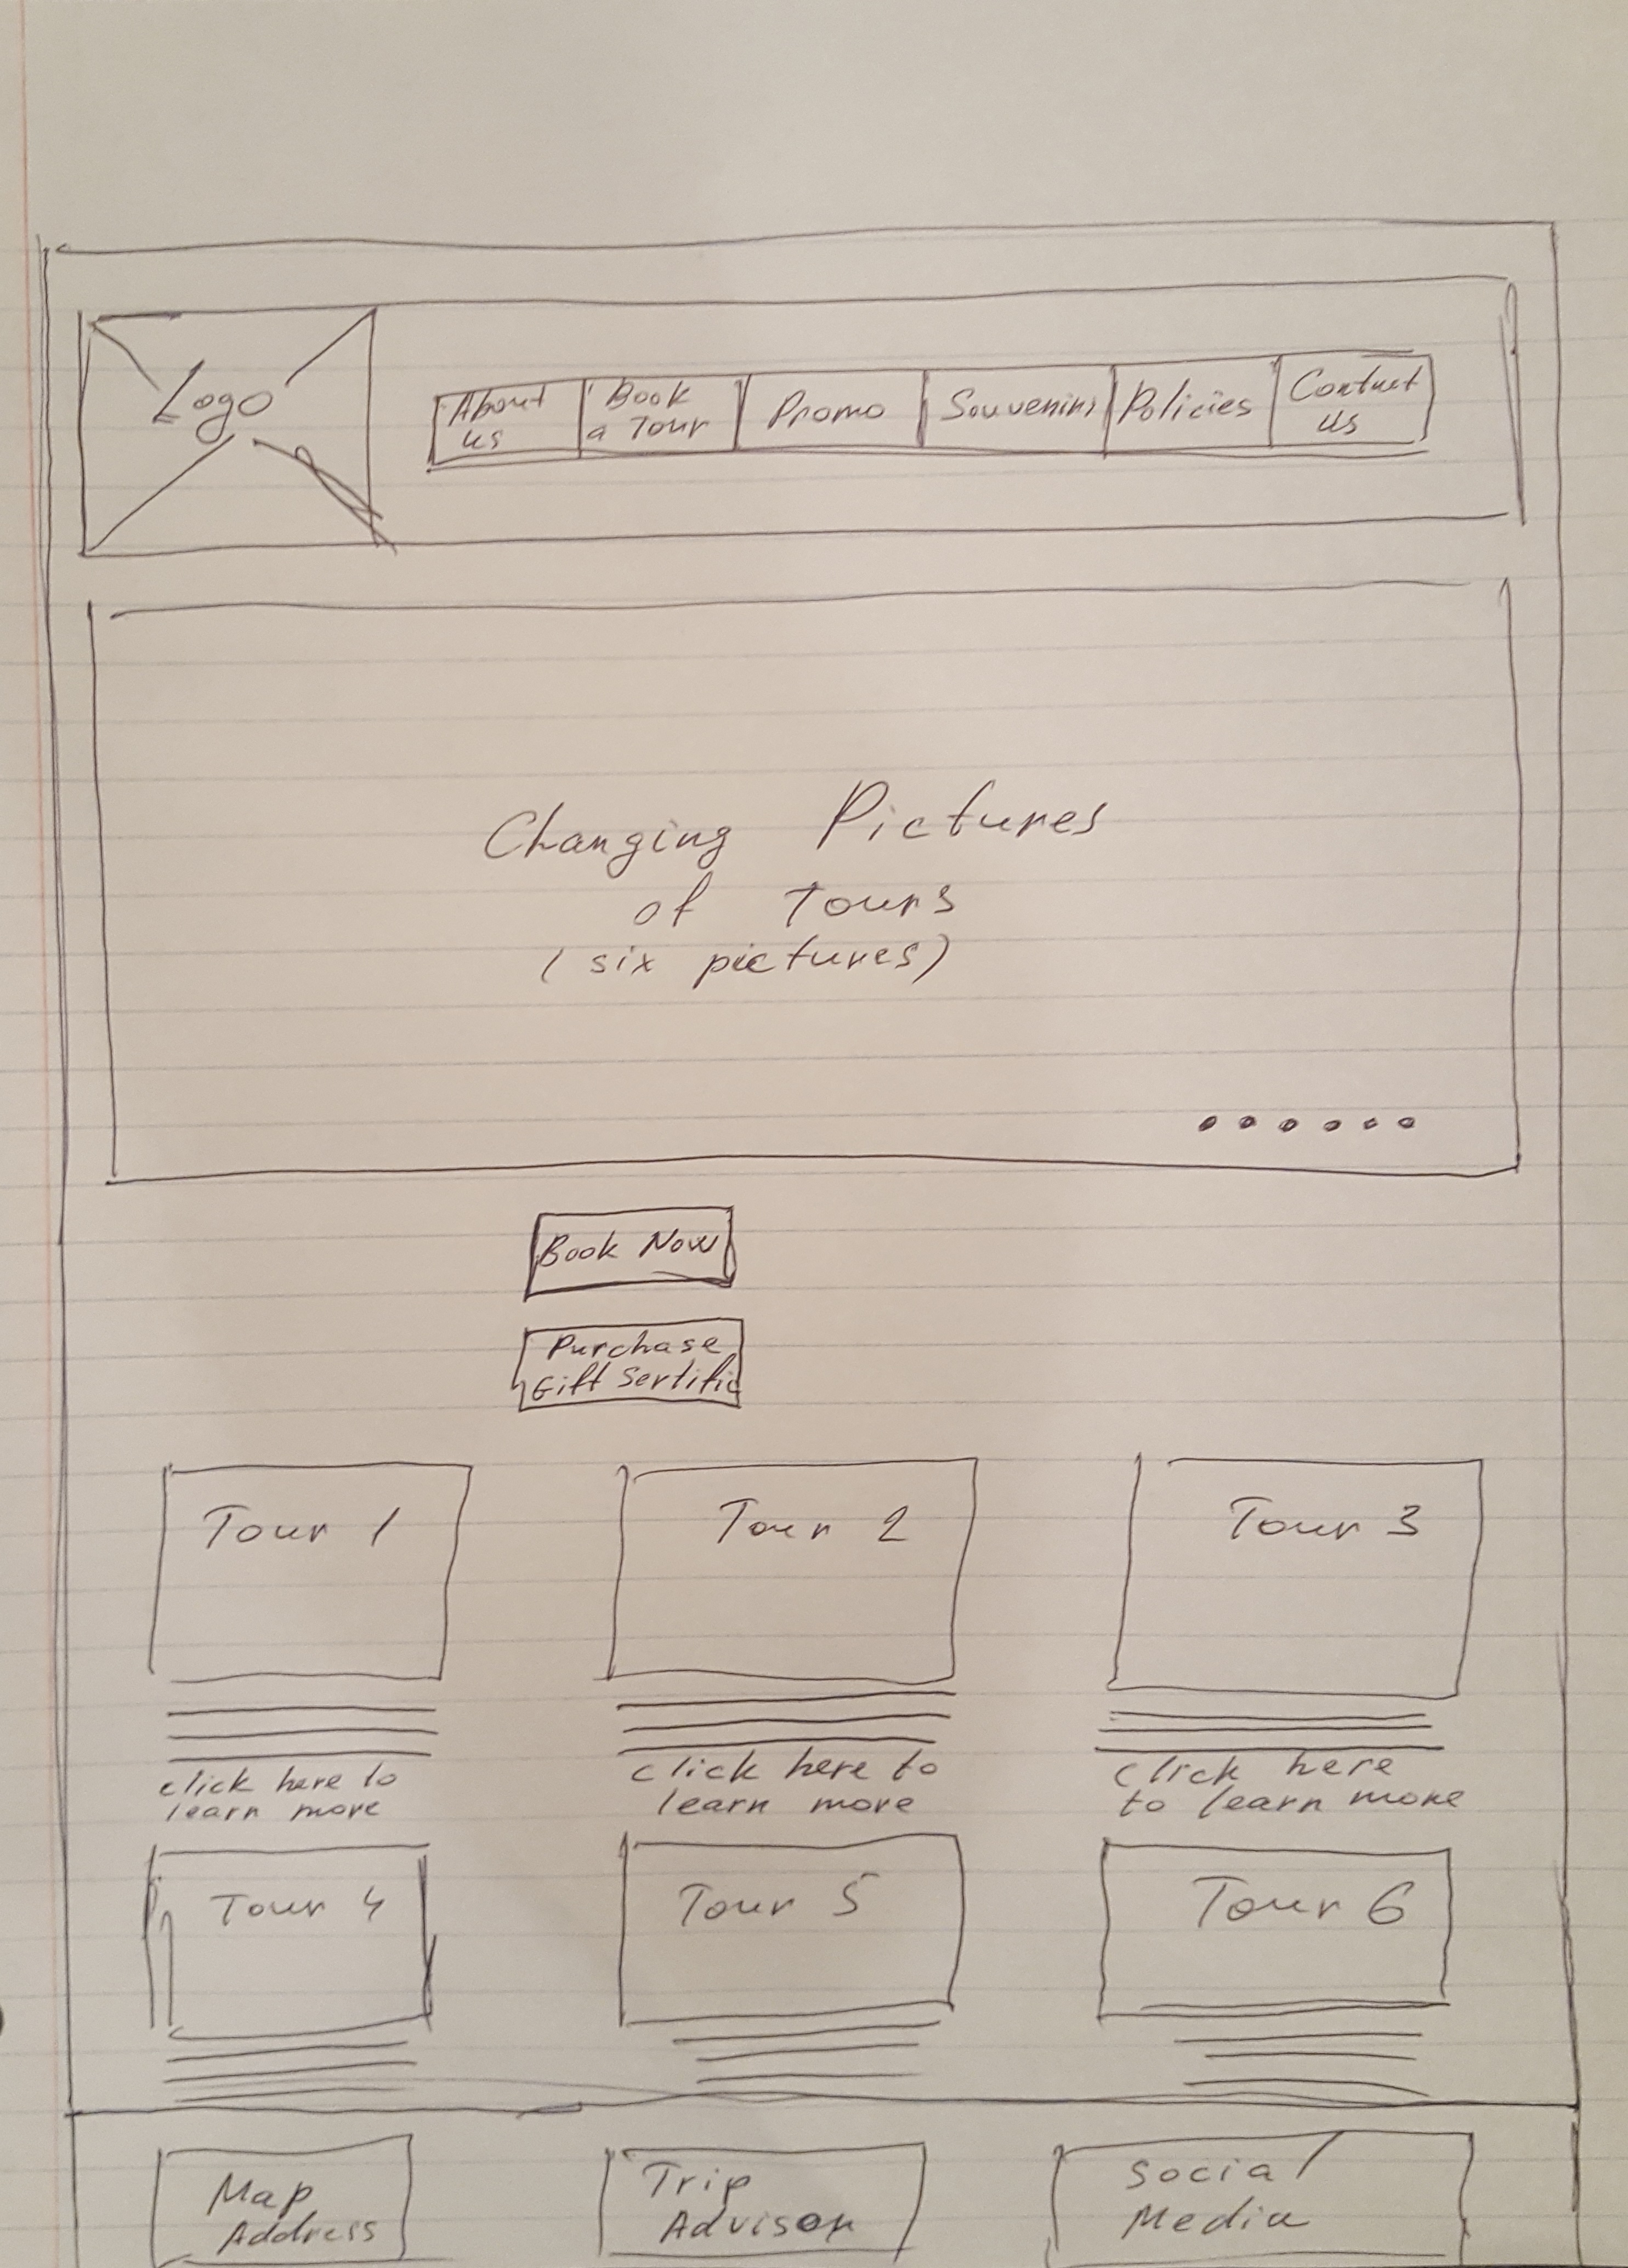 Logo
About us
Book a Tour
Promo
Souvenirs
Policies
Contact us
Changing Pictures
of Tours
(six pictures)
Book Now
Purchase
Gift Sertific
Tour 1
Tour 2
Tour 3
click here to
learn more
click here to
learn more
click here
to learn more
Tour 4
Tour 5
Tour 6
Map
Address
Trip
Advisor
Social
Media